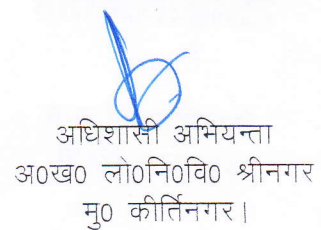 अधिशासी अभियन्ता
अ0ख0 लो0नि0वि0 श्रीनगर
मु0 कीर्तिनगर।